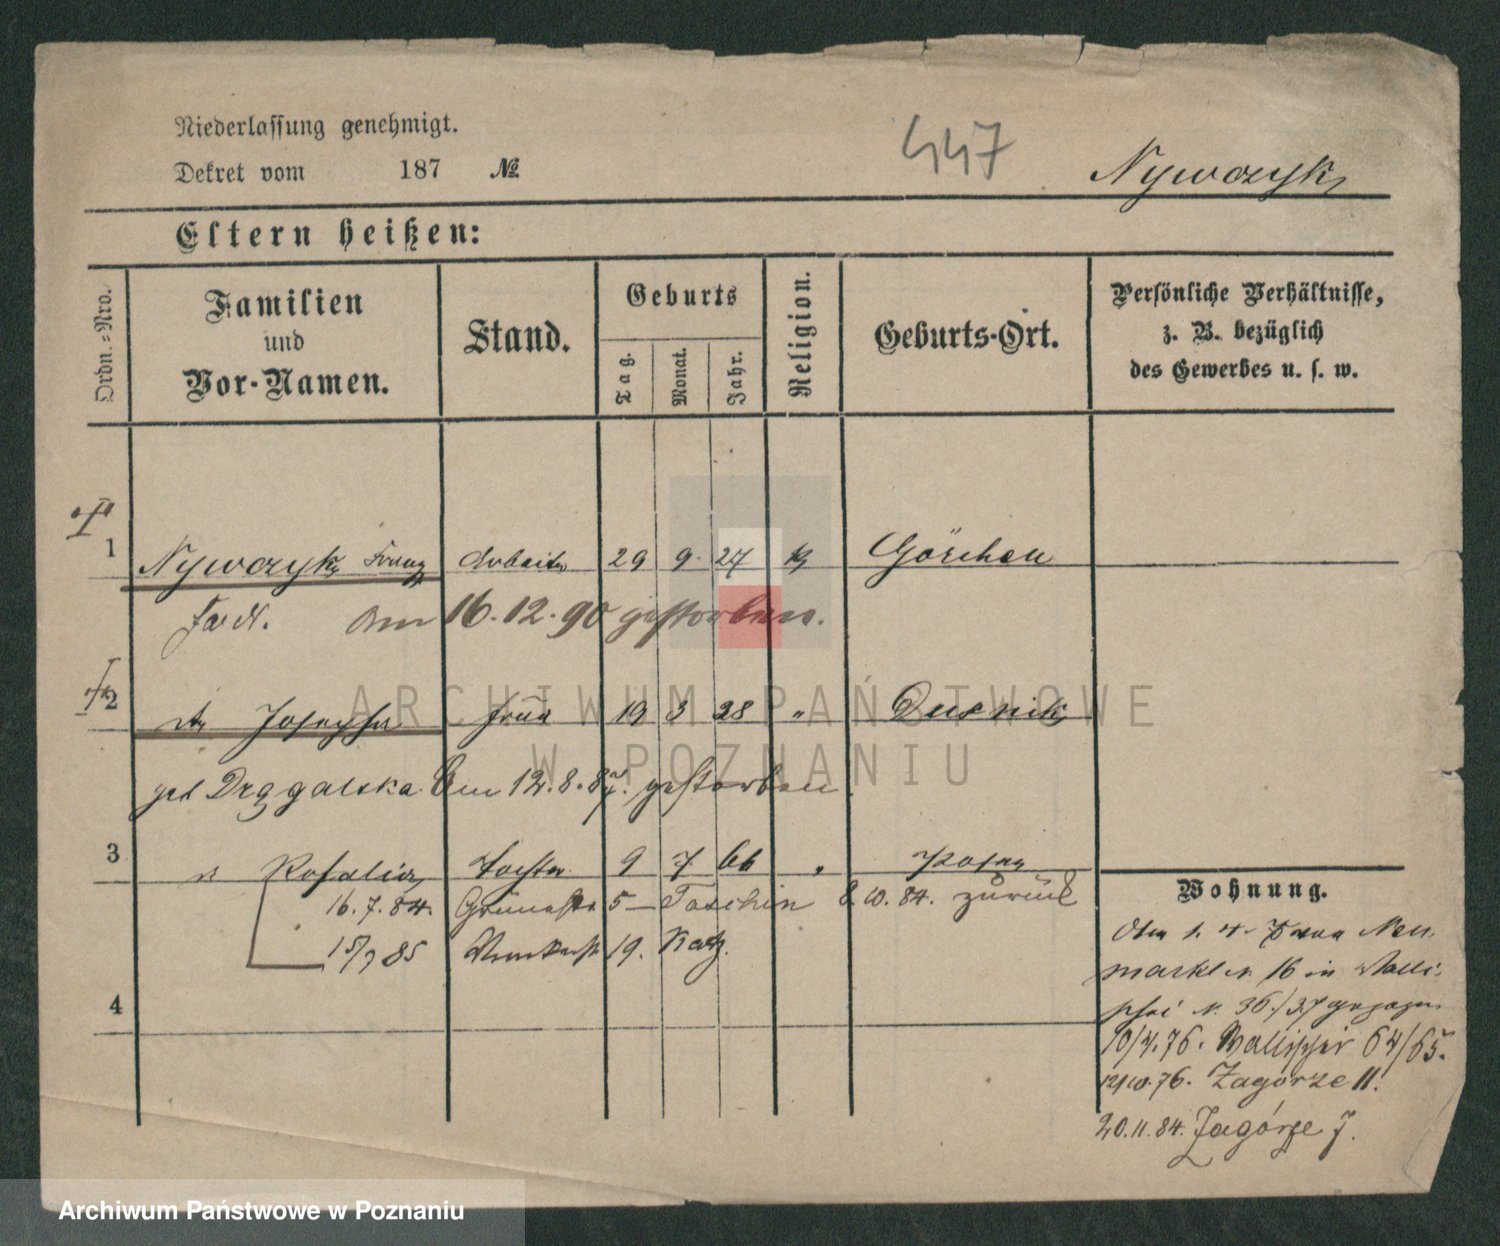 Niederlassung genehmigt.
447
Nywczyk,
Dekret vom 187 №
Eltern heißen:
Ordn.-Nro.
Familien
und
Vor-Namen.
Stand.
Geburts
Tag.
Monat.
Jahr.
Religion.
Geburts-Ort.
Persönliche Verhältnisse,
z. B. bezüglich
des Gewerbes u. s. w.
1 Nywczyk Franz Arbeiter 29 9. 27 k Görchen
am 16.12.90 gestorben.
2 Josepha Frau 19 3 28 " Dusnik
geb Drągalska Am 12.8.87. gestorben
3 Rosalia Tochter 9 7 66 " Posen
16.7.84. Grünestr 5 — Taschin 8.10.84. zurück
15/7 85 19. Katz.
4
Wohnung.
markt N. 16 in Walli-
schei N. 36/37 gezogen
10/4.76. Wallischei 64/65.
12/10.76. Zagorze 11.
20.11.84. Zagórze 7.
ARCHIWUM PAŃSTWOWE
W POZNANIU
Archiwum Państwowe w Poznaniu